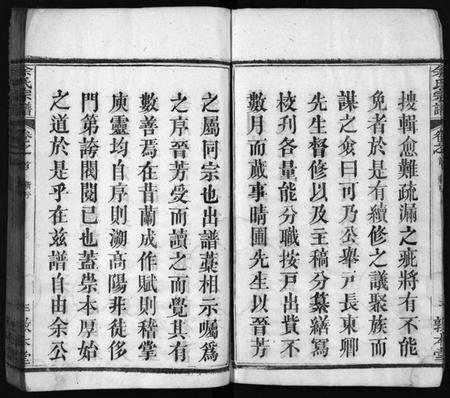 搜輯愈難疏漏之疵將有不能
免者於是有續修之議聚族而
謀之僉曰可乃公舉戸長東卿
先生督修以及主稿分纂繕寫
校刋各量能分職按戸出貲不
數月而蕆事晴圃先生以晉芳
之屬同宗也出譜藁相示囑爲
之序晉芳受而讀之而覺其有
數善焉在昔蘭成作賦則稽掌
庾靈均自序則溯高陽非徒侈
門第誇閥閱已也蓋崇本厚始
之道於是乎在兹譜自由余公
余氏宗譜
卷之首
敦本堂
余氏宗譜
卷之首
敦本堂